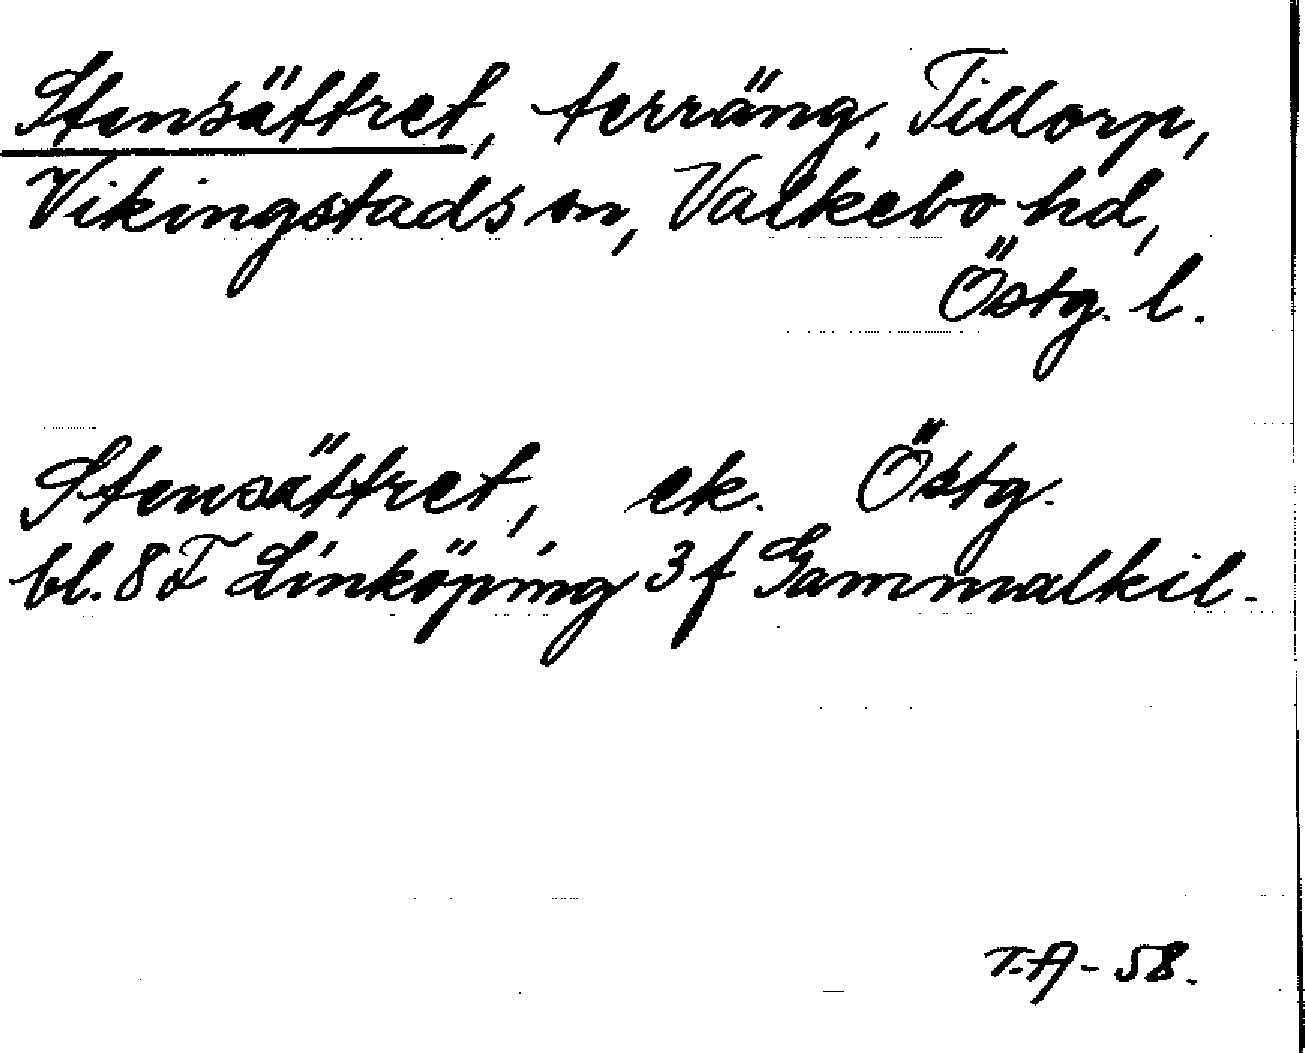 Stensättret, terräng, Tillorp,
Vikingstads sn, Valkebo hd,
Östg. l.
Stensättret, ek. Östg.
bl. 8 F Linköping 3 f Gammalkil.
T.A - 58.